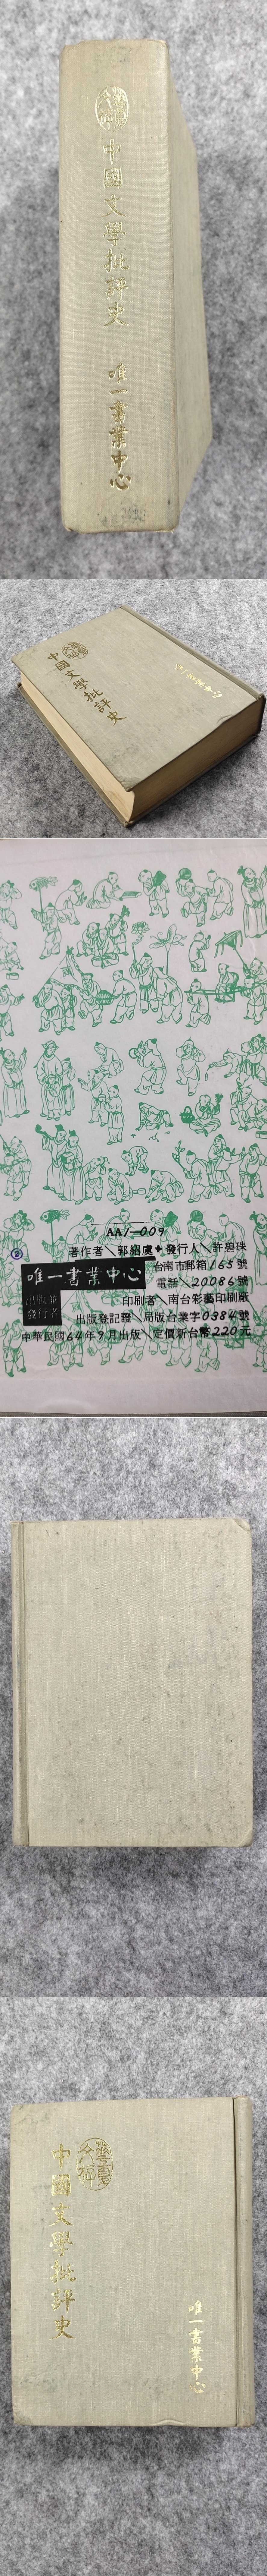 中國文學批評史
唯一書業中心
中國文學批評史
唯一書業中心
AA1—009
著作者＼郭紹虞✦發行人＼許碧珠
唯一書業中心
台南市郵箱165號
出版並
發行者
電話／20086號
印刷者／南台彩藝印刷廠
出版登記證／局版台業字0384號
中華民國64年9月出版＼定價新台幣220元
中國文學批評史
唯一書業中心